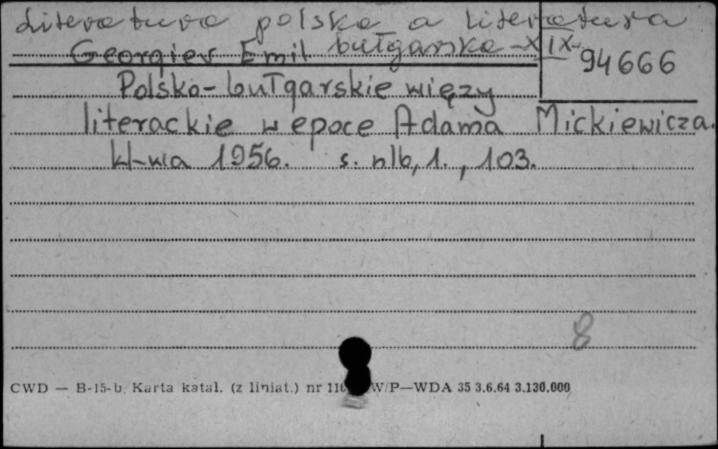 Literatura polska a literatura
bułgarska - XIX
Georgiev Emil
94666
Polsko-bułgarskie więzy
literackie w epoce Adama Mickiewicza.
W-wa 1956. s. nlb, 1., 103.
8
CWD — B-15-b. Karta katal. (z liniat.) nr W/P—WDA 35 3.6.64 3.130.000